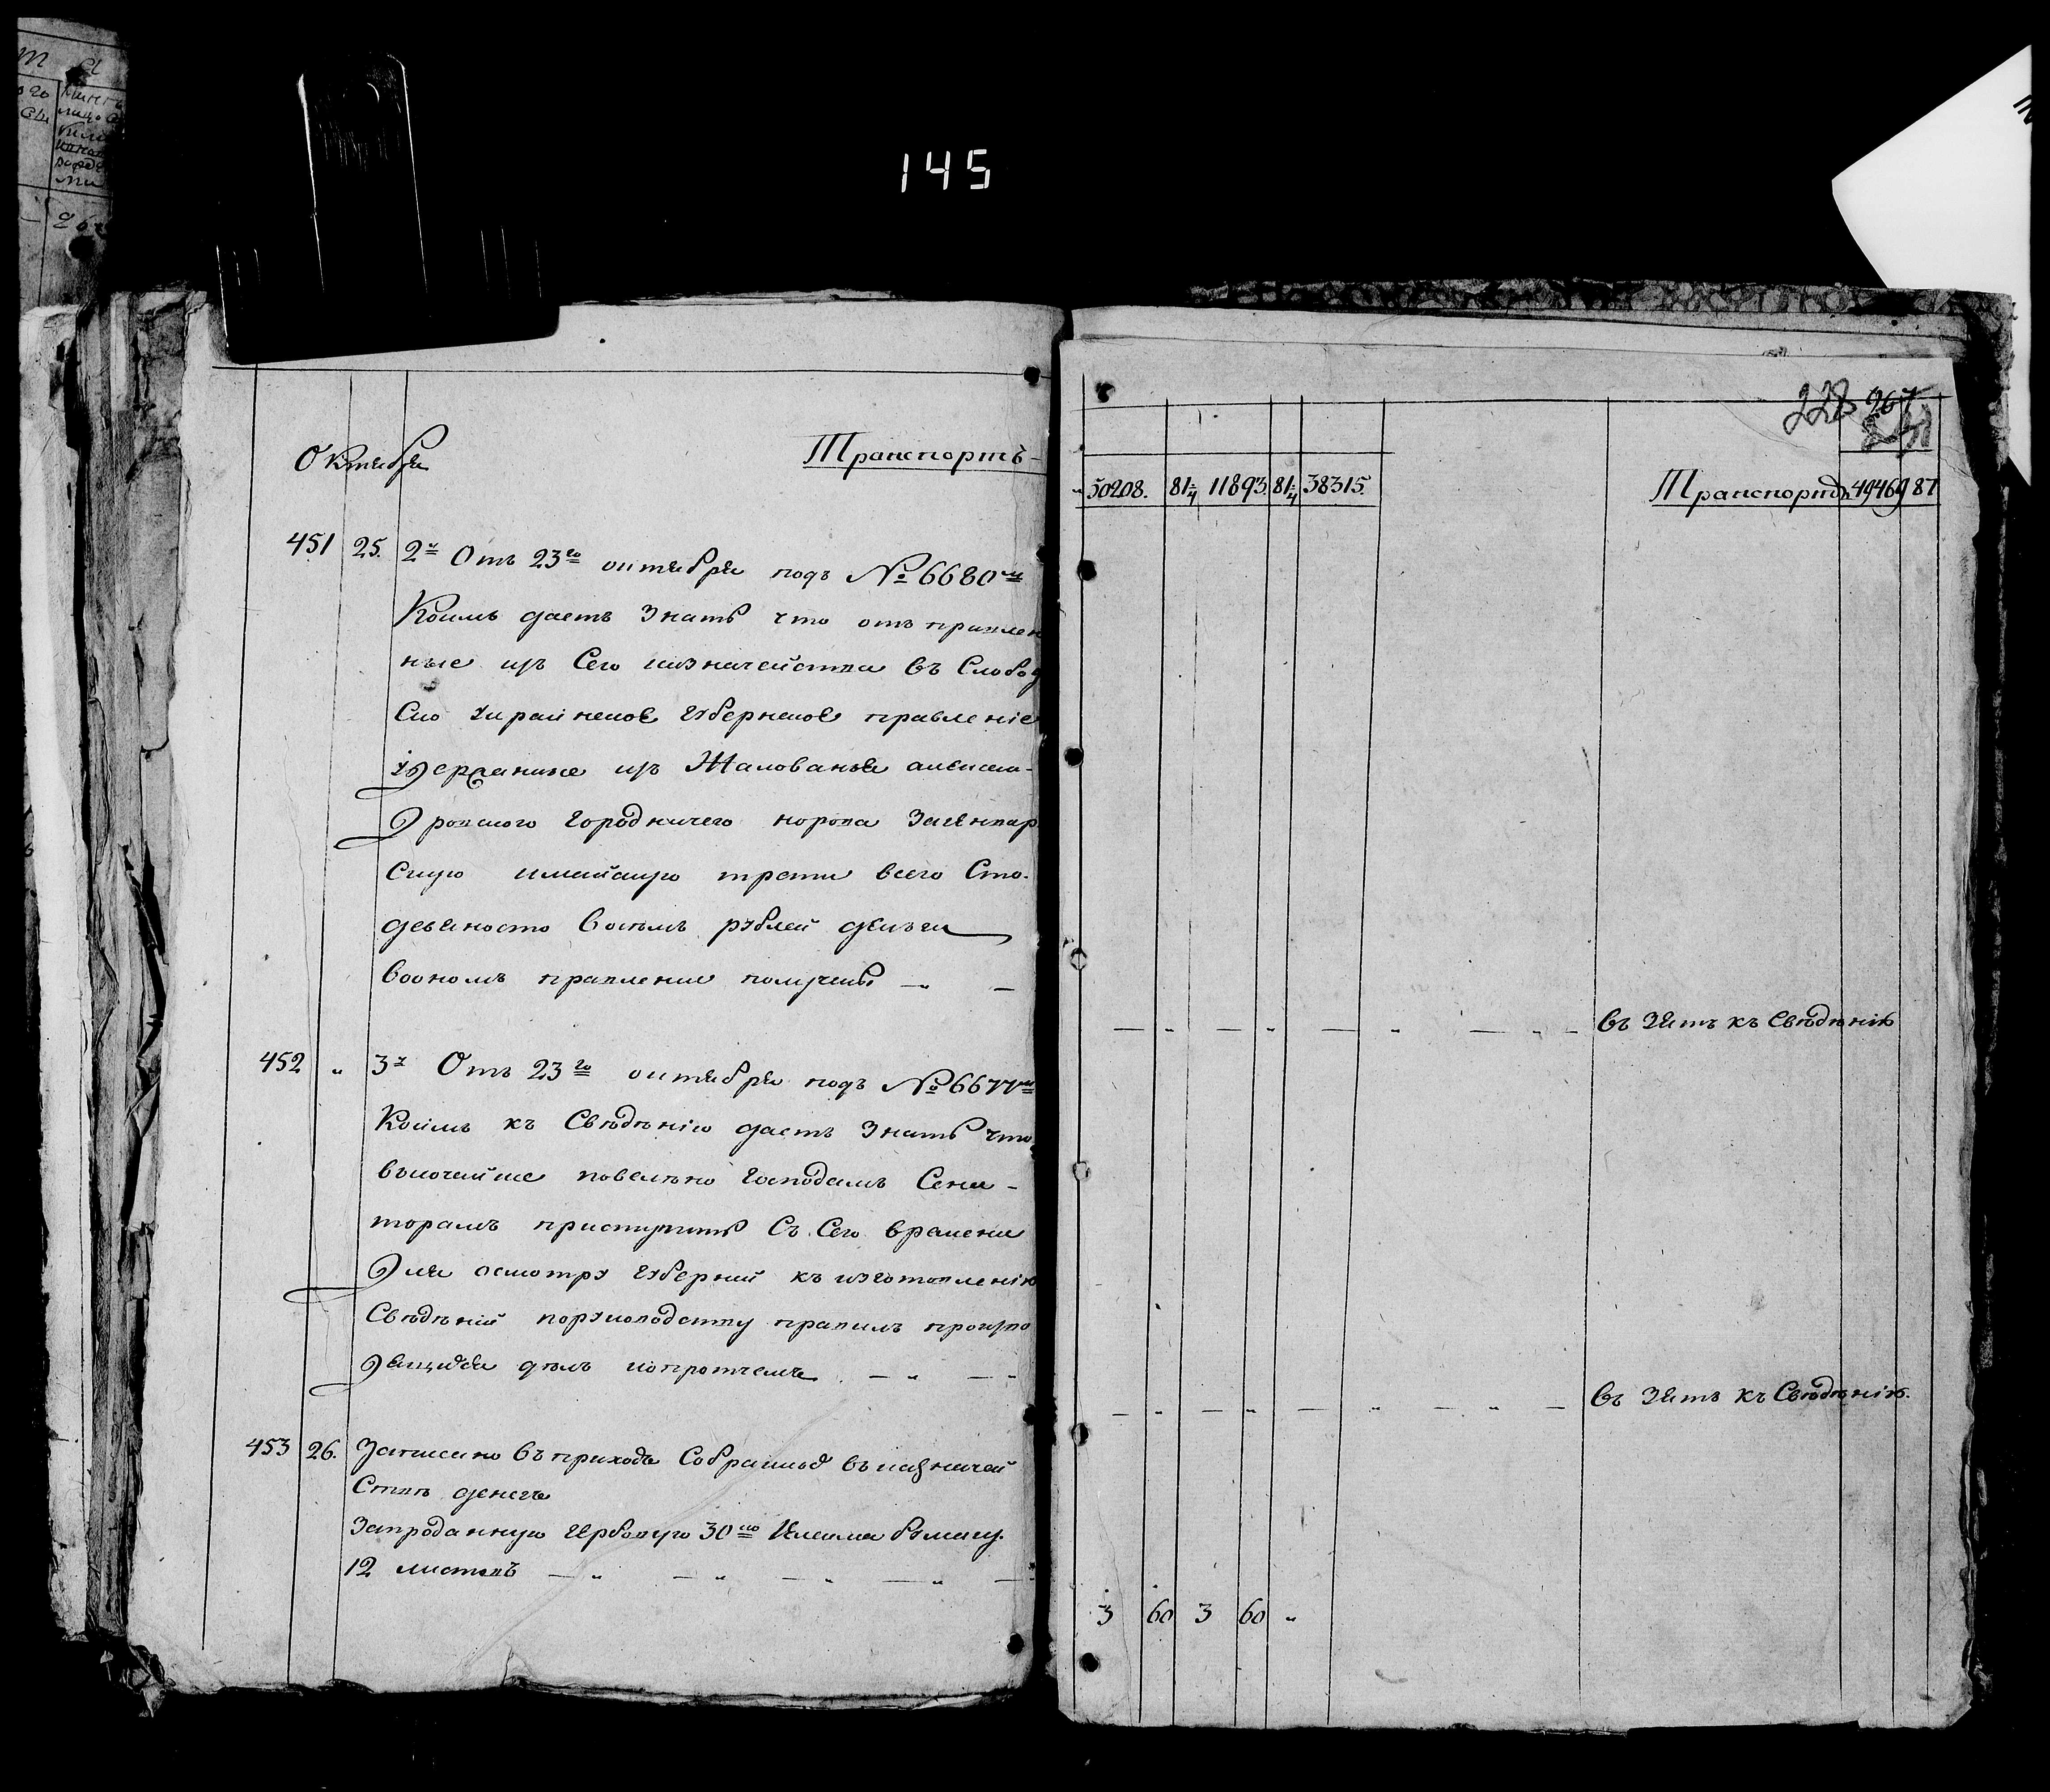 145
Октября
Транспортъ
451 25. 2е Отъ 23го октября подъ № 6680мъ
Коимъ даетъ знать что отправлен
ные изъ Сего казначейства въ Слобод
Ско украинское губернское правленіе
удержанные изъ Жалованья алекса-
дровского городничего за генвар
скую майскую трети всего Сто-
девяносто восемь рублей деньги
воономъ правлении получены
452 „ 3е Отъ 23го октября подъ № 6677мъ
Коимъ къ Сведѣнію даетъ знать что
высочайше повелѣно Господамъ Сена-
торамъ приступить Съ Сего времени
Для осмотру губерний къ изготовленію
Сведѣній порукоподству правилъ произво
дящихся дѣлъ ипротчемъ
453 26. Записано въ приходъ Собранной въ казначей
Ствѣ денегъ
Запроданную гербовую 30ко Клейма бумагу
12 листовъ
228 267
50208. 81¼ 11893. 81¼ 38315. Транспортъ 49469 87
въ зятъ къ Свѣдѣнію
въ зятъ къ Свѣдѣнію.
3 60 3 60 „